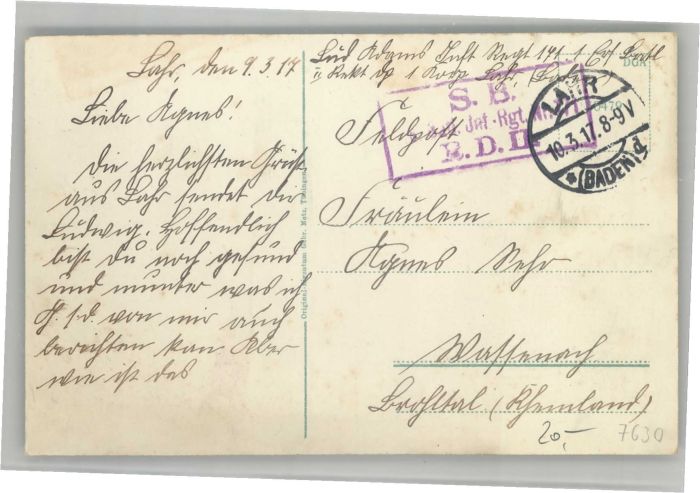 Lahr, den 9.3.17
Liebe Agnes!
Die herzlichsten Grüße
aus Lahr sendet dir
Ludwig. Hoffendlich
bist du noch gesund
und munter was ich
G. s. d. von mir auch
berichten kan. Aber
wie ist das
Lud Adams Inft Regt 171 1 Ers Batl
1 Lahr, (Baden)
S. B.
Inf.-Rgt.
R. D.
LAHR
10.3.17. 8-9V
* (BADEN) d
Feldpost
Fräulein
Agnes Sehr
Wassenach
Brohltal (Rheinland)
20,-
7630